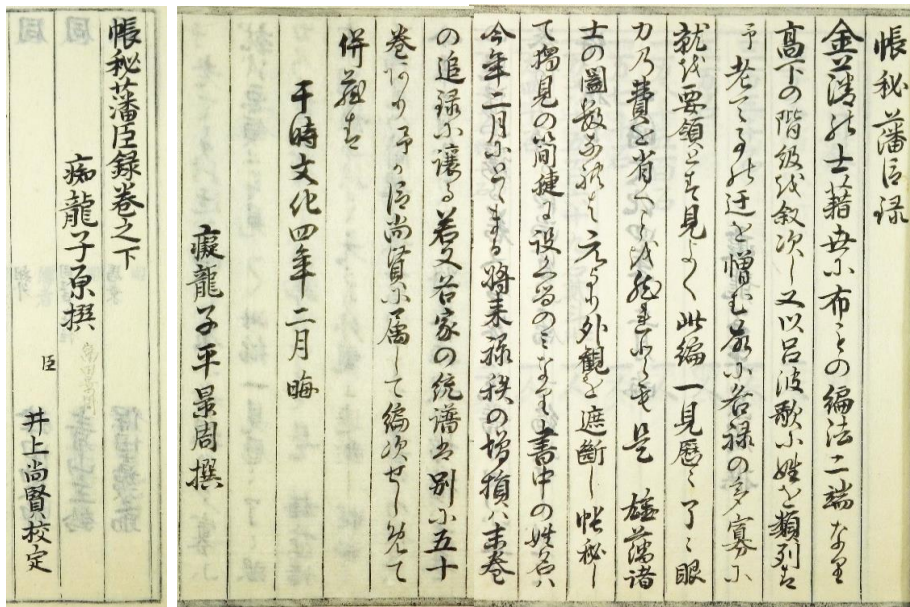 帳秘藩臣録
金藩の士藉世に布くの編法二端なり
高下の階級を叙次し又以呂波歌に姓を類列す
予老て其の迂を憎む茲に各禄の多寡に
就を要領とす見よく此編一見暦々了々眼
力乃費を省へくを然れとも是 雄藩諸
士の圖数なれは元より外観を遮断し帳秘し
て獨見の簡捷に設くるのみなり書中の姓名ハ
今年二月にとゝまる将来禄秩の増損ハ末巻
の追録に譲る若又各家の統譜は別に五十
巻あり予か臣尚賢に属して編次せしめて
併蔵す
干時文化四年二月晦
癡龍子平景周撰
帳秘藩臣録巻之下
痴龍子原撰
臣
井上尚賢校定